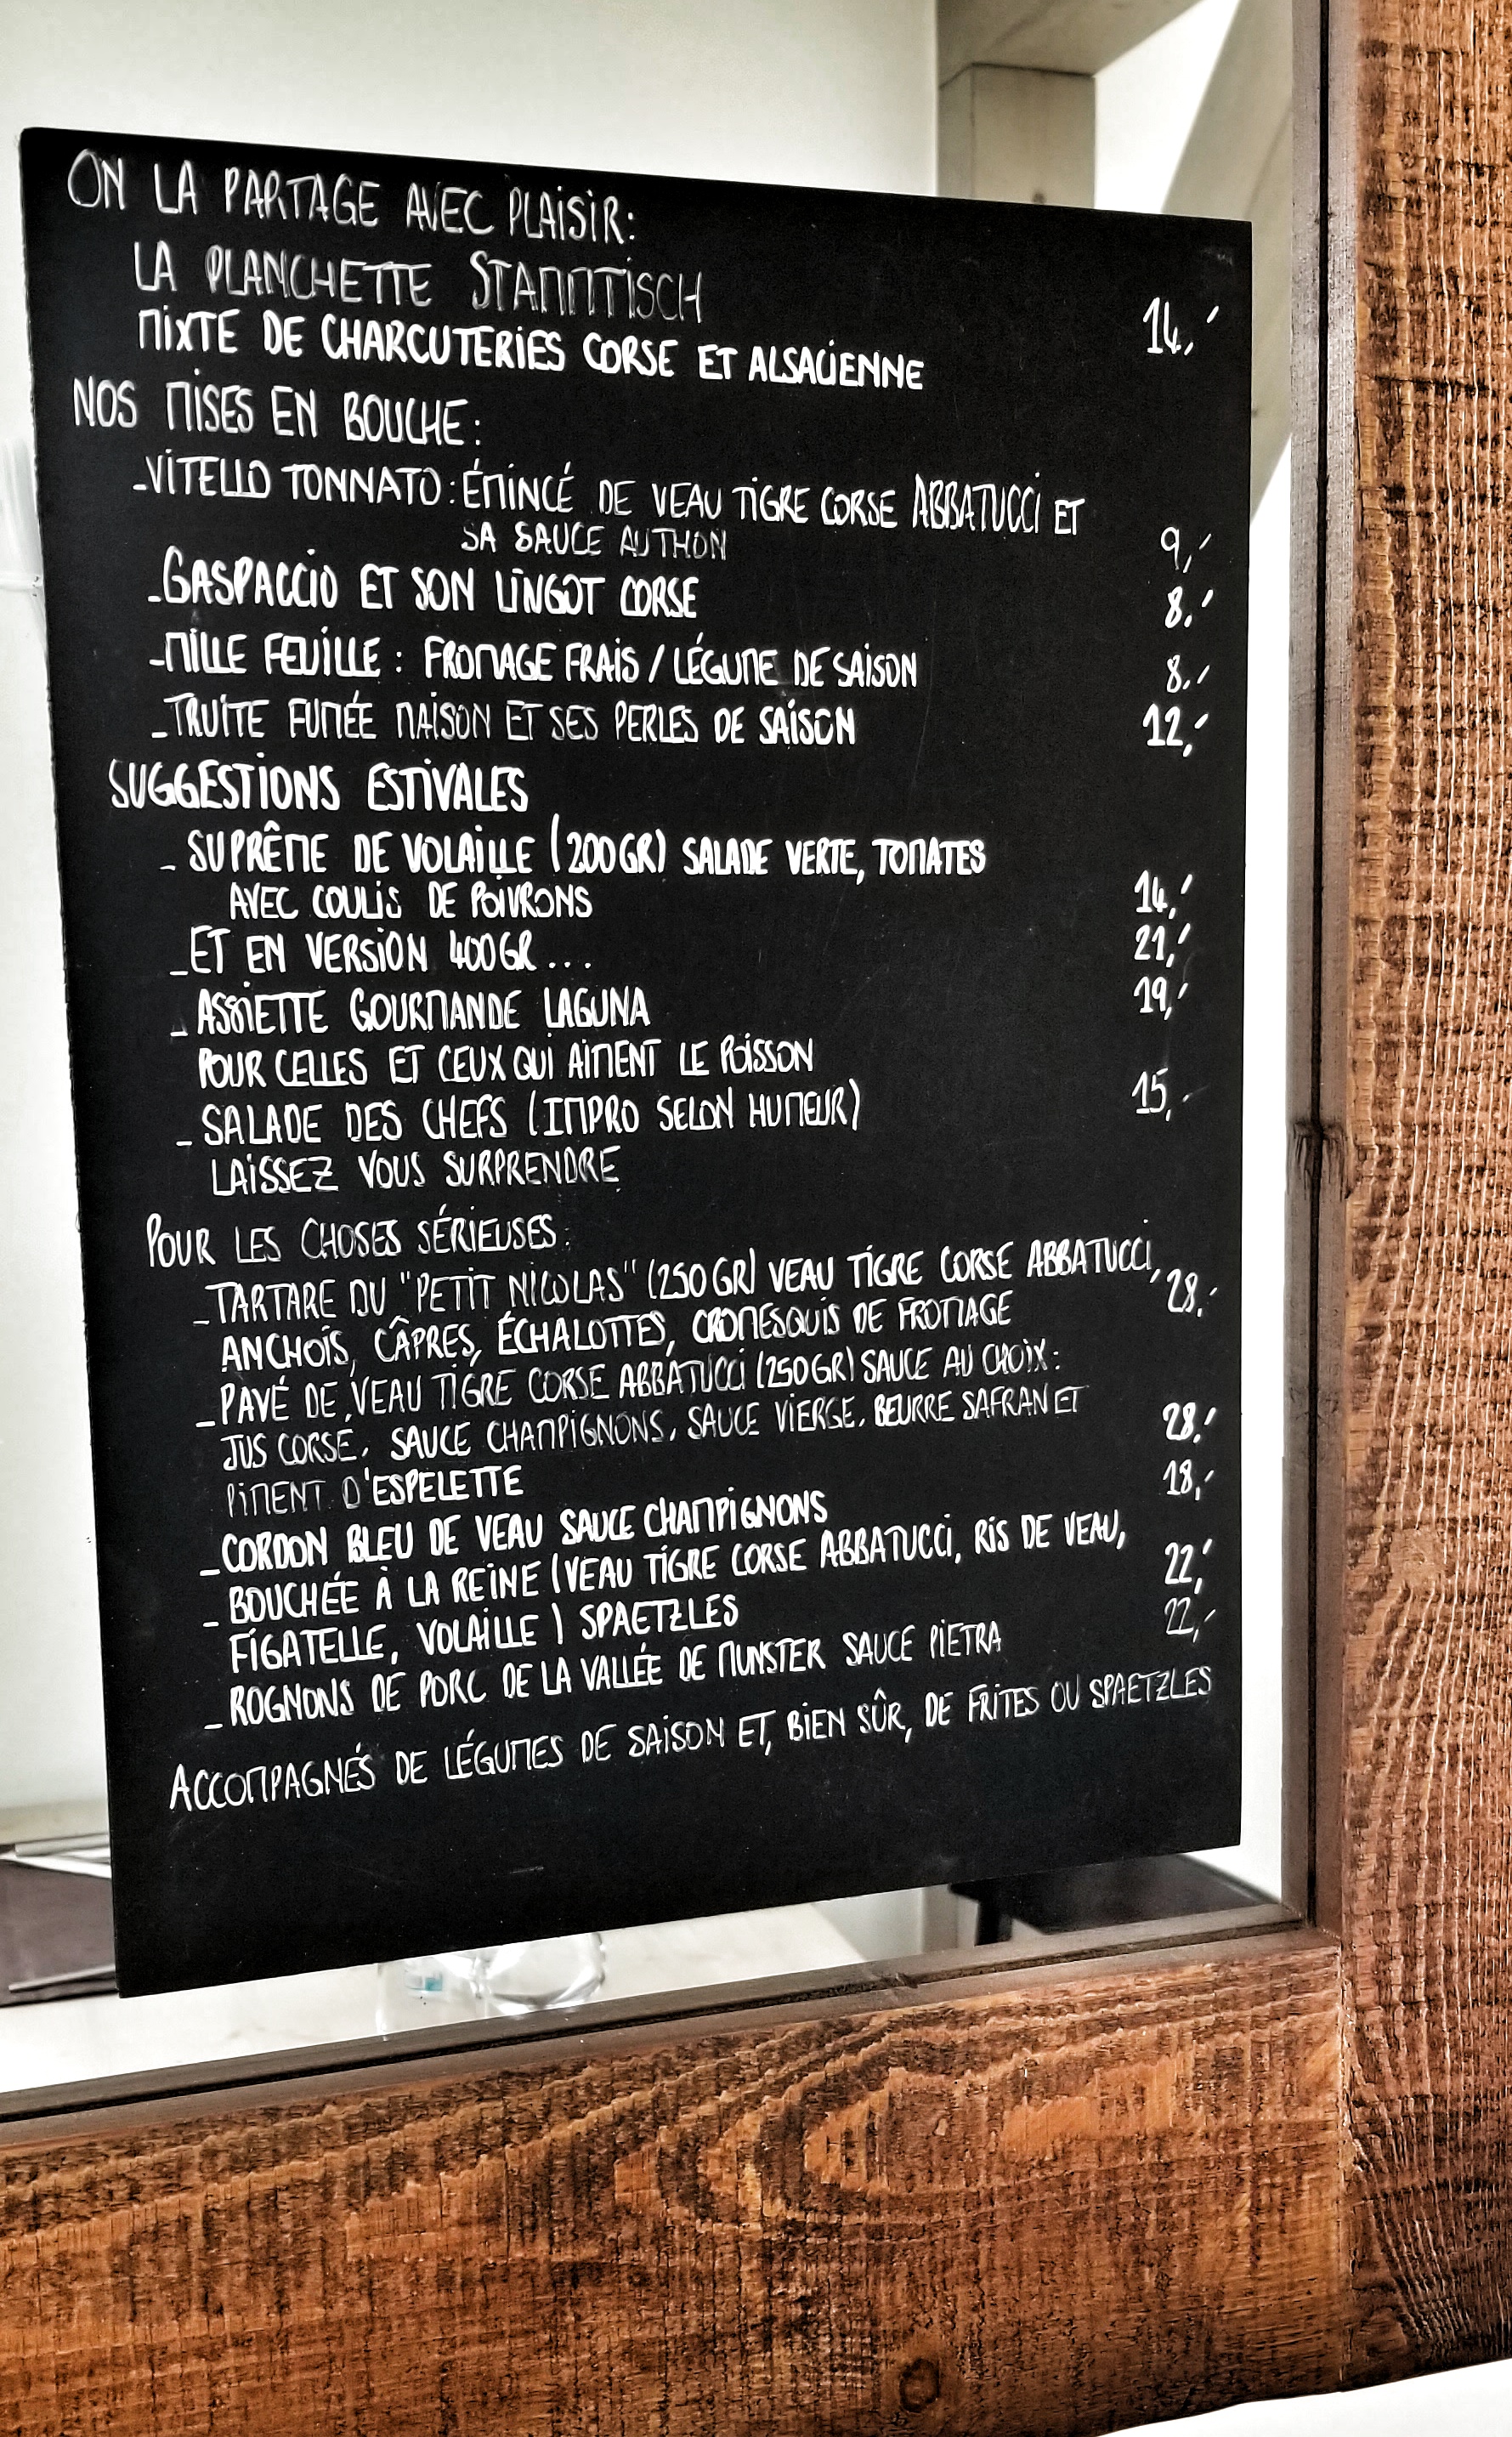 ON LA PARTAGE AVEC PLAISIR:
LA PLANCHETTE STAMMTISCH
MIXTE DE CHARCUTERIES CORSE ET ALSACIENNE 14,-
NOS MISES EN BOUCHE:
-VITELLO TONNATO: ÉMINCÉ DE VEAU TIGRE CORSE ABBATUCCI ET
SA SAUCE AU THON 9,-
-GASPACCIO ET SON LINGOT CORSE 8.-
-MILLE FEUILLE: FROMAGE FRAIS / LÉGUME DE SAISON 8.-
-TRUITE FUMÉE MAISON ET SES PERLES DE SAISON 12,-
SUGGESTIONS ESTIVALES
- SUPRÊME DE VOLAILLE (200GR) SALADE VERTE, TOMATES
AVEC COULIS DE POIVRONS 14,-
-ET EN VERSION 400GR... 21,-
- ASSIETTE GOURMANDE LAGUNA 19,-
POUR CELLES ET CEUX QUI AIMENT LE POISSON
- SALADE DES CHEFS (IMPRO SELON HUMEUR) 15,-
LAISSEZ VOUS SURPRENDRE
POUR LES CHOSES SÉRIEUSES:
-TARTARE DU "PETIT NICOLAS" (250GR) VEAU TIGRE CORSE ABBATUCCI,
ANCHOIS, CÂPRES, ÉCHALOTTES, CROMESQUIS DE FROMAGE 28.-
-PAVÉ DE VEAU TIGRE CORSE ABBATUCCI (250GR) SAUCE AU CHOIX:
JUS CORSE, SAUCE CHAMPIGNONS, SAUCE VIERGE, BEURRE SAFRAN ET
PIMENT D'ESPELETTE 28.-
-CORDON BLEU DE VEAU SAUCE CHAMPIGNONS 18,-
- BOUCHÉE À LA REINE (VEAU TIGRE CORSE ABBATUCCI, RIS DE VEAU,
FIGATELLE, VOLAILLE) SPAETZLES 22,-
-ROGNONS DE PORC DE LA VALLÉE DE MUNSTER SAUCE PIETRA 22,-
ACCOMPAGNÉS DE LÉGUMES DE SAISON ET, BIEN SÛR, DE FRITES OU SPAETZLES